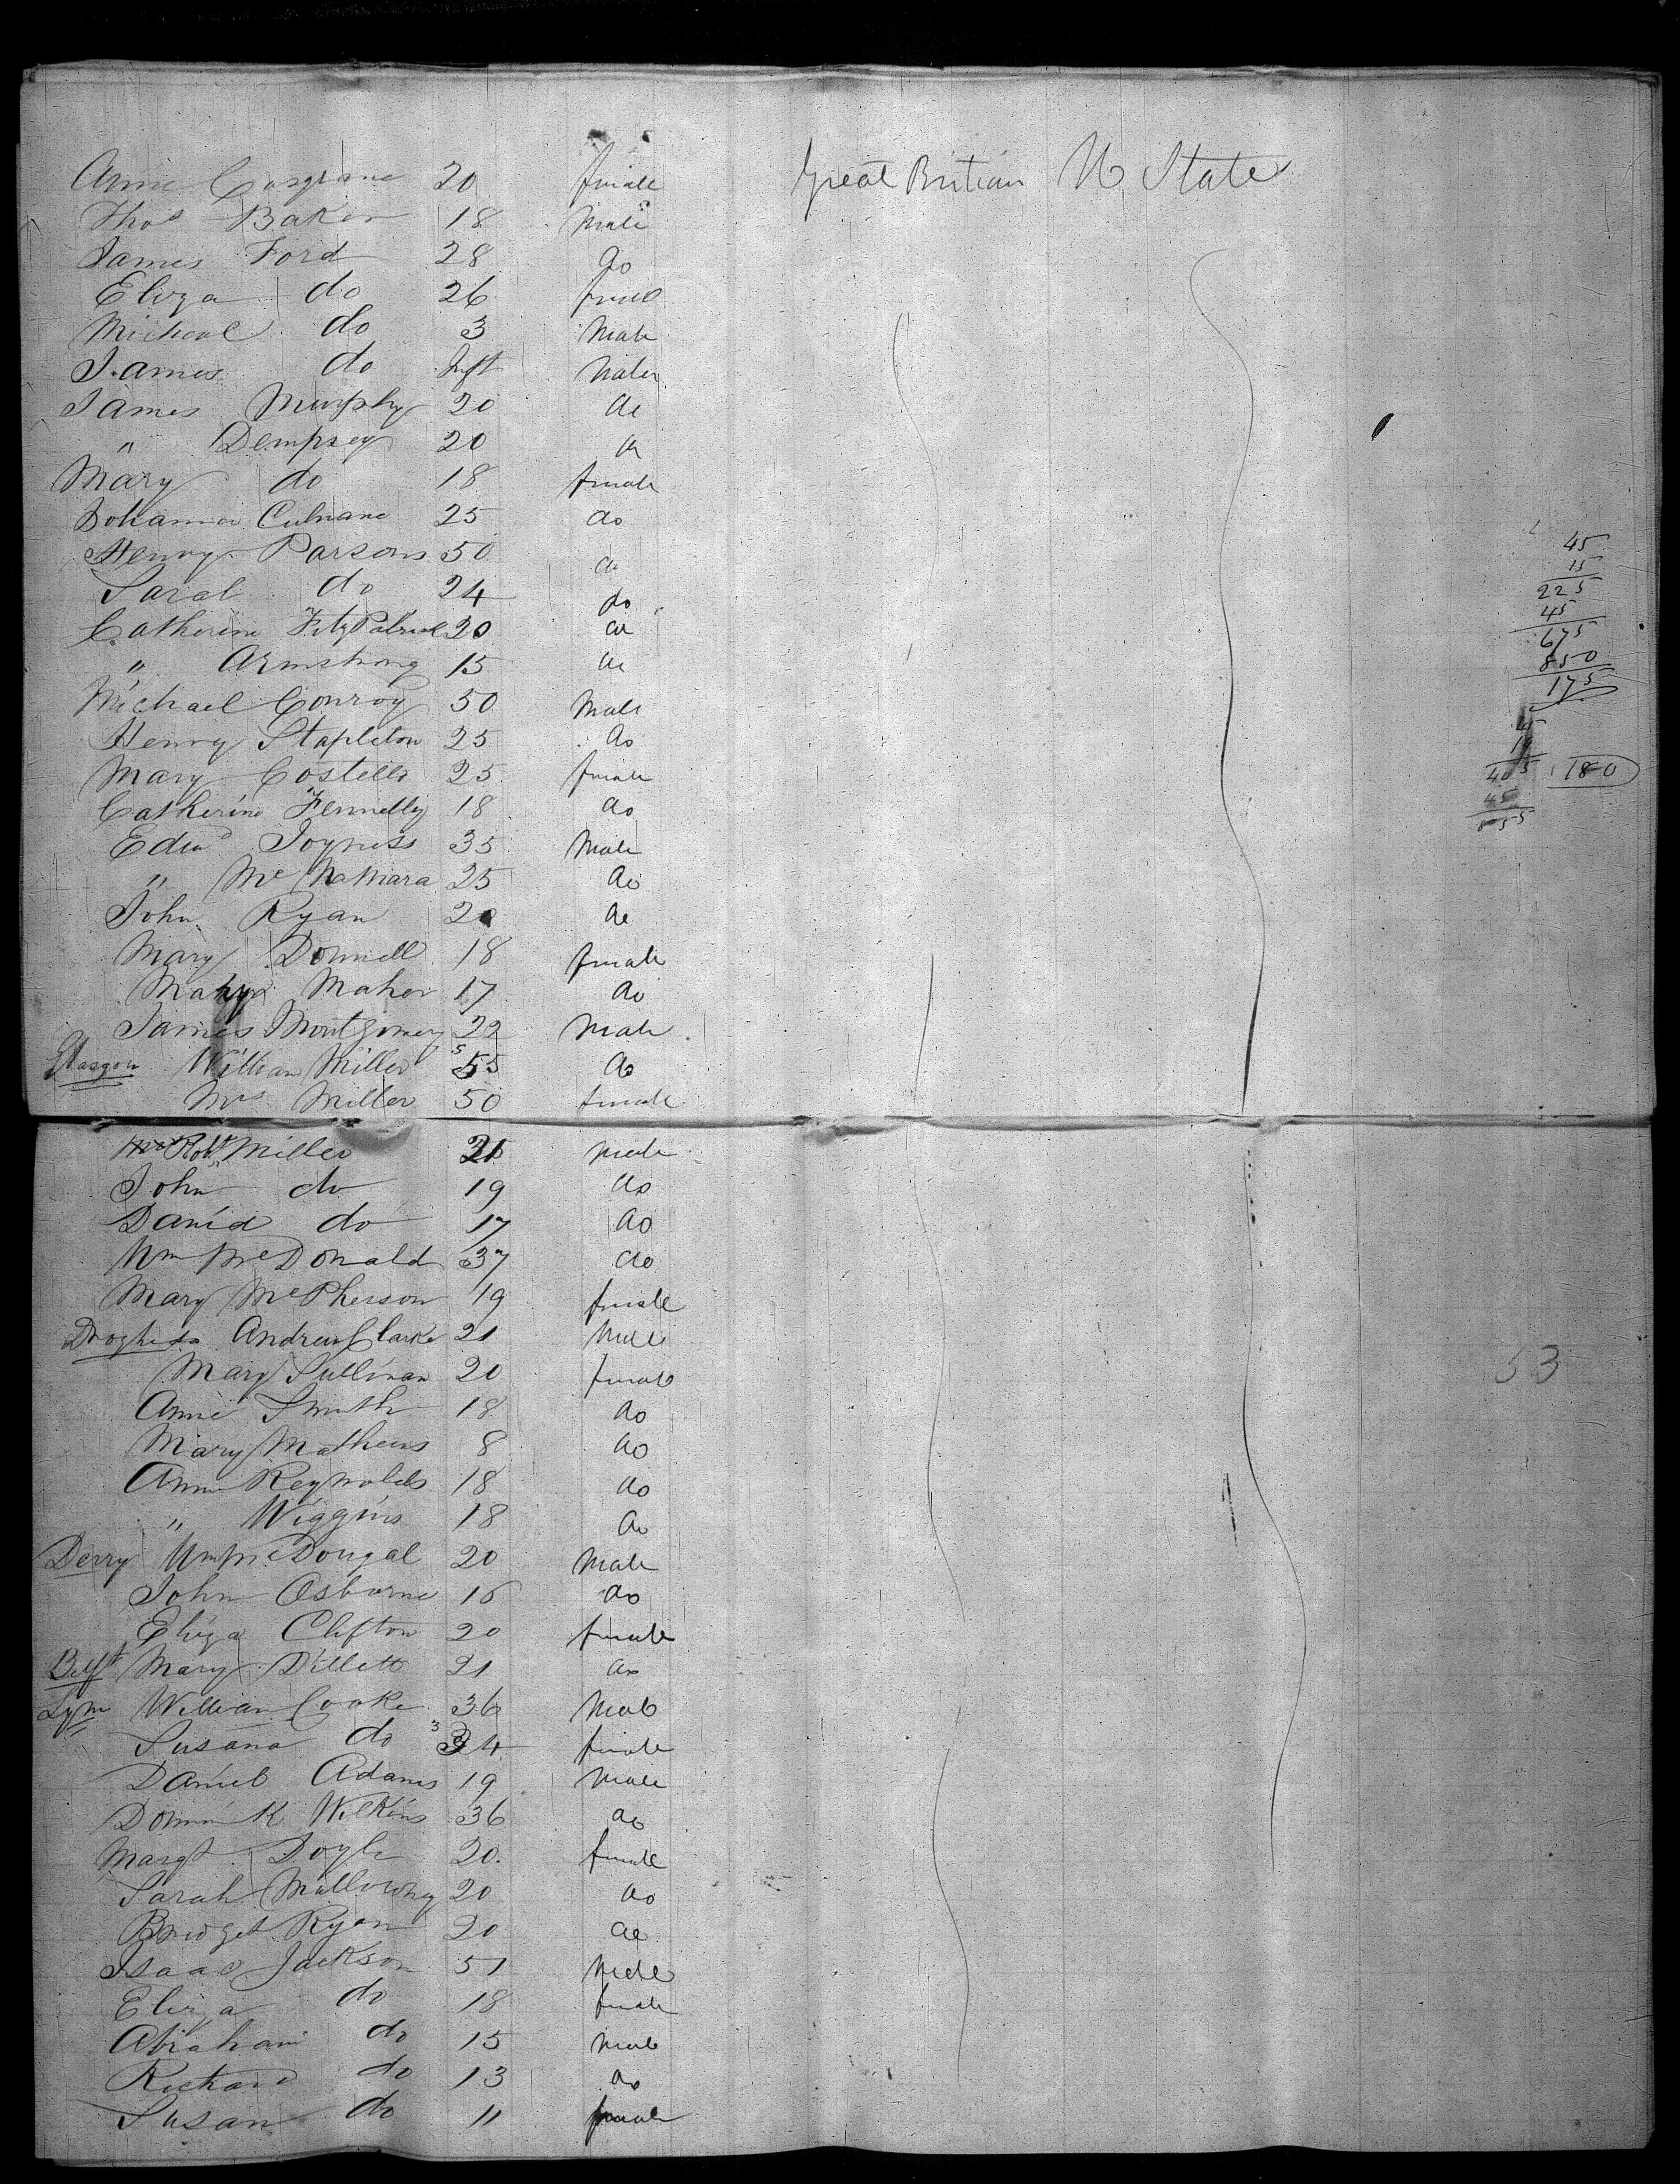 Annie Cosgrane 20 female Great Britian U State
Thos Baker 18 Male
James Ford 28 do
Eliza do 26 female
Micheal do 3 Male
James do Inft Male
James Murphy 20 do
" Dempsey 20 do
Mary do 18 female
Johanna Culnane 25 do
Henry Parsons 50 do
Sarah do 24 do
Catherine FitzPatrick 20 do
" Armstrong 15 do
Michael Conroy 50 Male
Henry Stapleton 25 do
Mary Costello 25 female
Catherine Fennelly 18 do
Edwd Joyness 35 Male
" Mc Namara 25 do
John Ryan 20 do
Mary Donnell 18 female
Mary Maher 17 do
James Montgomery 22 Male
Glasgow William Miller 55 do
Mrs Miller 50 female
Robt Miller 21 male
John do 19 do
David do 17 do
Wm McDonald 37 do
Mary McPherson 19 female
Drogheda Andrew Clarke 21 Male
Mary Sullivan 20 female
Annie Smith 18 do
Mary Mathews 8 do
Ann Reynolds 18 do
" Wiggins 18 do
Derry Wm McDougal 20 Male
John Osborne 16 do
Eliza Clifton 20 female
Belft Mary Dillett 21 do
William Cooke 36 Male
Susana do 34 female
Daniel Adams 19 Male
Dominik Wilkins 36 do
Margt Doyle 20 female
Sarah Mullowny 20 do
Bridget Ryan 20 do
Isaac Jackson 51 Male
Eliza do 18 female
Abraham do 15 Male
Richard do 13 do
Susan do 11 female
45
15
225
45
675
850
175
45
405 180
45
855
53